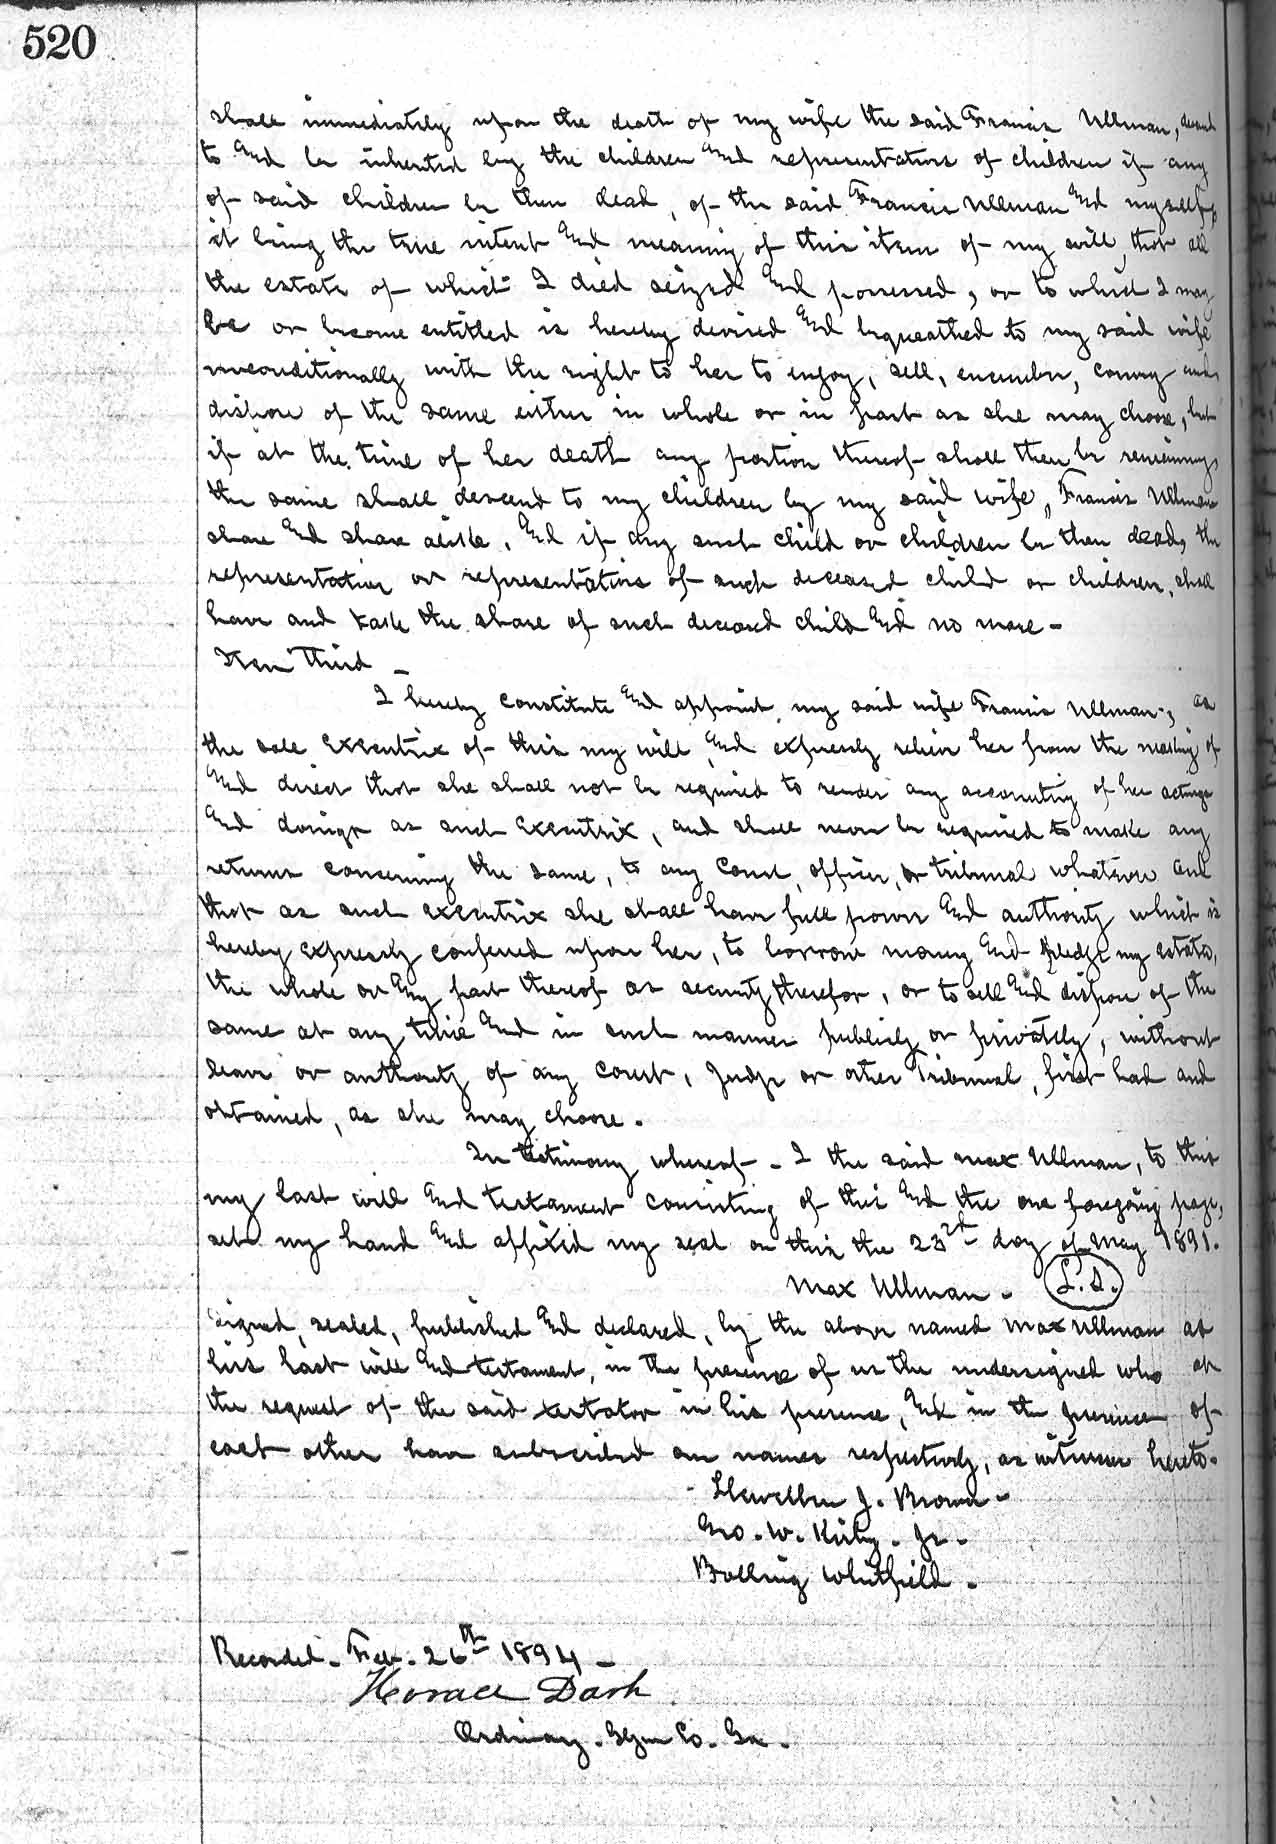 520
shall immediately upon the death of my wife the said Francis Ullman, descend
to and be inherited by the children and representatives of children if any
of said children be then dead, of the said Francis Ullman and myself,
it being the true intent and meaning of this item of my will, that all
the estate of which I died seized and possessed, or to which I may
be or become entitled is hereby devised and bequeathed to my said wife
unconditionally with the right to her to enjoy, sell, encumber, convey and
dispose of the same either in whole or in part as she may choose, but
if at the time of her death any portion thereof shall then be remaining
the same shall descend to my children by my said wife, Francis Ullman
share and share alike, and if any such child or children be then dead, the
representative or representatives of such deceased child or children, shall
have and take the share of such deceased child and no more -
Item Third -
I hereby constitute and appoint my said wife Francis Ullman, as
the sole Executrix of this my will and expressly relieve her from the making of
and direct that she shall not be required to render any accounting of her actings
and doings as such Executrix, and shall never be required to make any
returns concerning the same, to any Court, officer, or tribunal whatever and
that as such executrix she shall have full power and authority which is
hereby expressly conferred upon her, to borrow money and pledge my estate,
the whole or any part thereof as security therefor, or to sell and dispose of the
same at any time and in such manner publicly or privately, without
leave or authority of any court, Judge or other Tribunal, first had and
obtained, as she may choose.
In testimony whereof - I the said Max Ullman, to this
my last will and testament consisting of this and the one foregoing page,
set my hand and affixed my seal on this the 23rd day of May 1891.
Max Ullman - L.S.
Signed, sealed, published and declared, by the above named Max Ullman as
his last will and testament, in the presence of us the undersigned who at
the request of the said testator in his presence, and in the presence of
each other have subscribed our names respectively, as witnesses hereto.
Llewellen J. Brown -
Geo. W. Kirby - Jr. -
Bolling Whitfield -
Recorded - Feb. 26th 1894 -
Horace Dart
Ordinary - Glynn Co. Ga. -